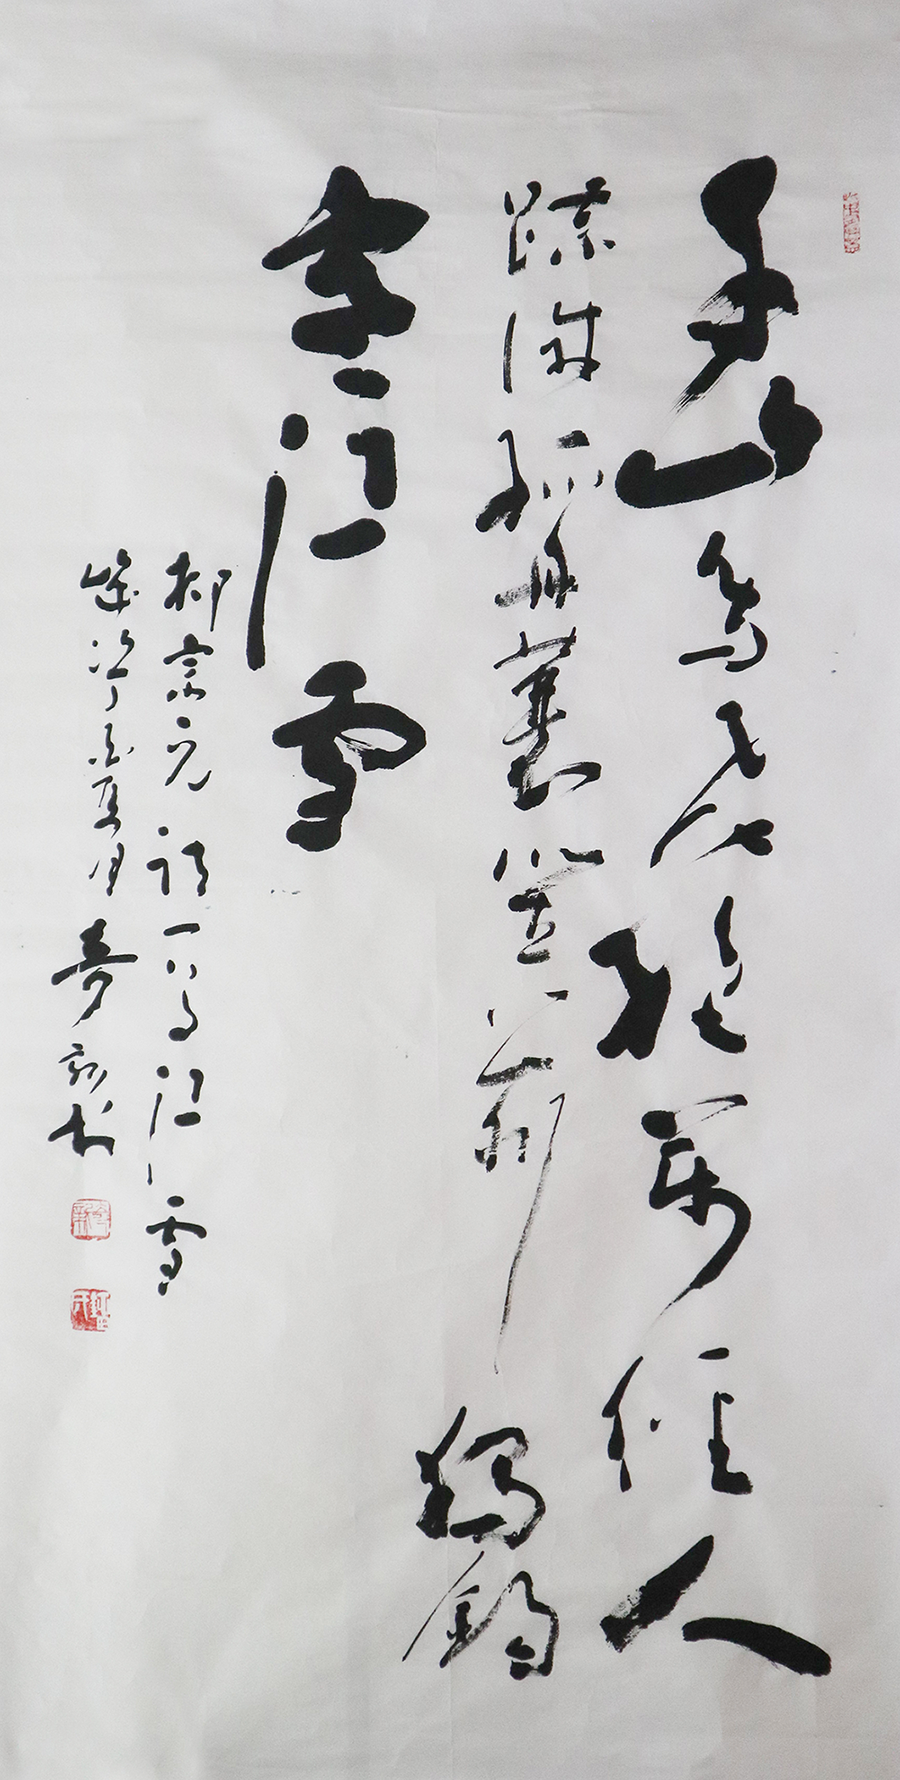 千山鳥飛絕萬徑人
踪滅孤舟蓑笠翁獨釣
寒江雪
柳宗元詩一首江雪
歲次丁酉夏月書